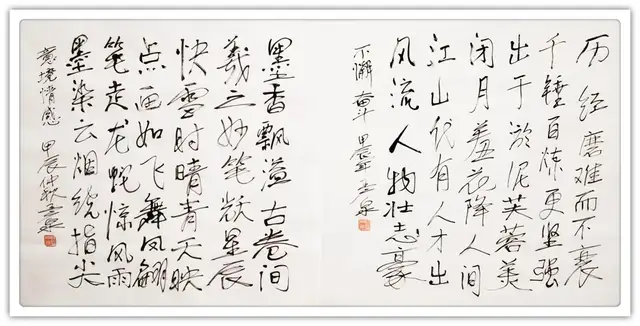 历经磨难而不衰
千锤百炼更坚强
出于淤泥芙蓉美
闭月羞花降人间
江山代有人才出
风流人物壮志豪
不懈奋斗 甲辰 王泉
墨香飘溢古卷间
羲之妙笔星辰
快雪时晴青天映
点画如飞舞凤翩
笔走龙蛇惊风雨
墨染云烟绕指尖
意境情感 甲辰仲秋王泉